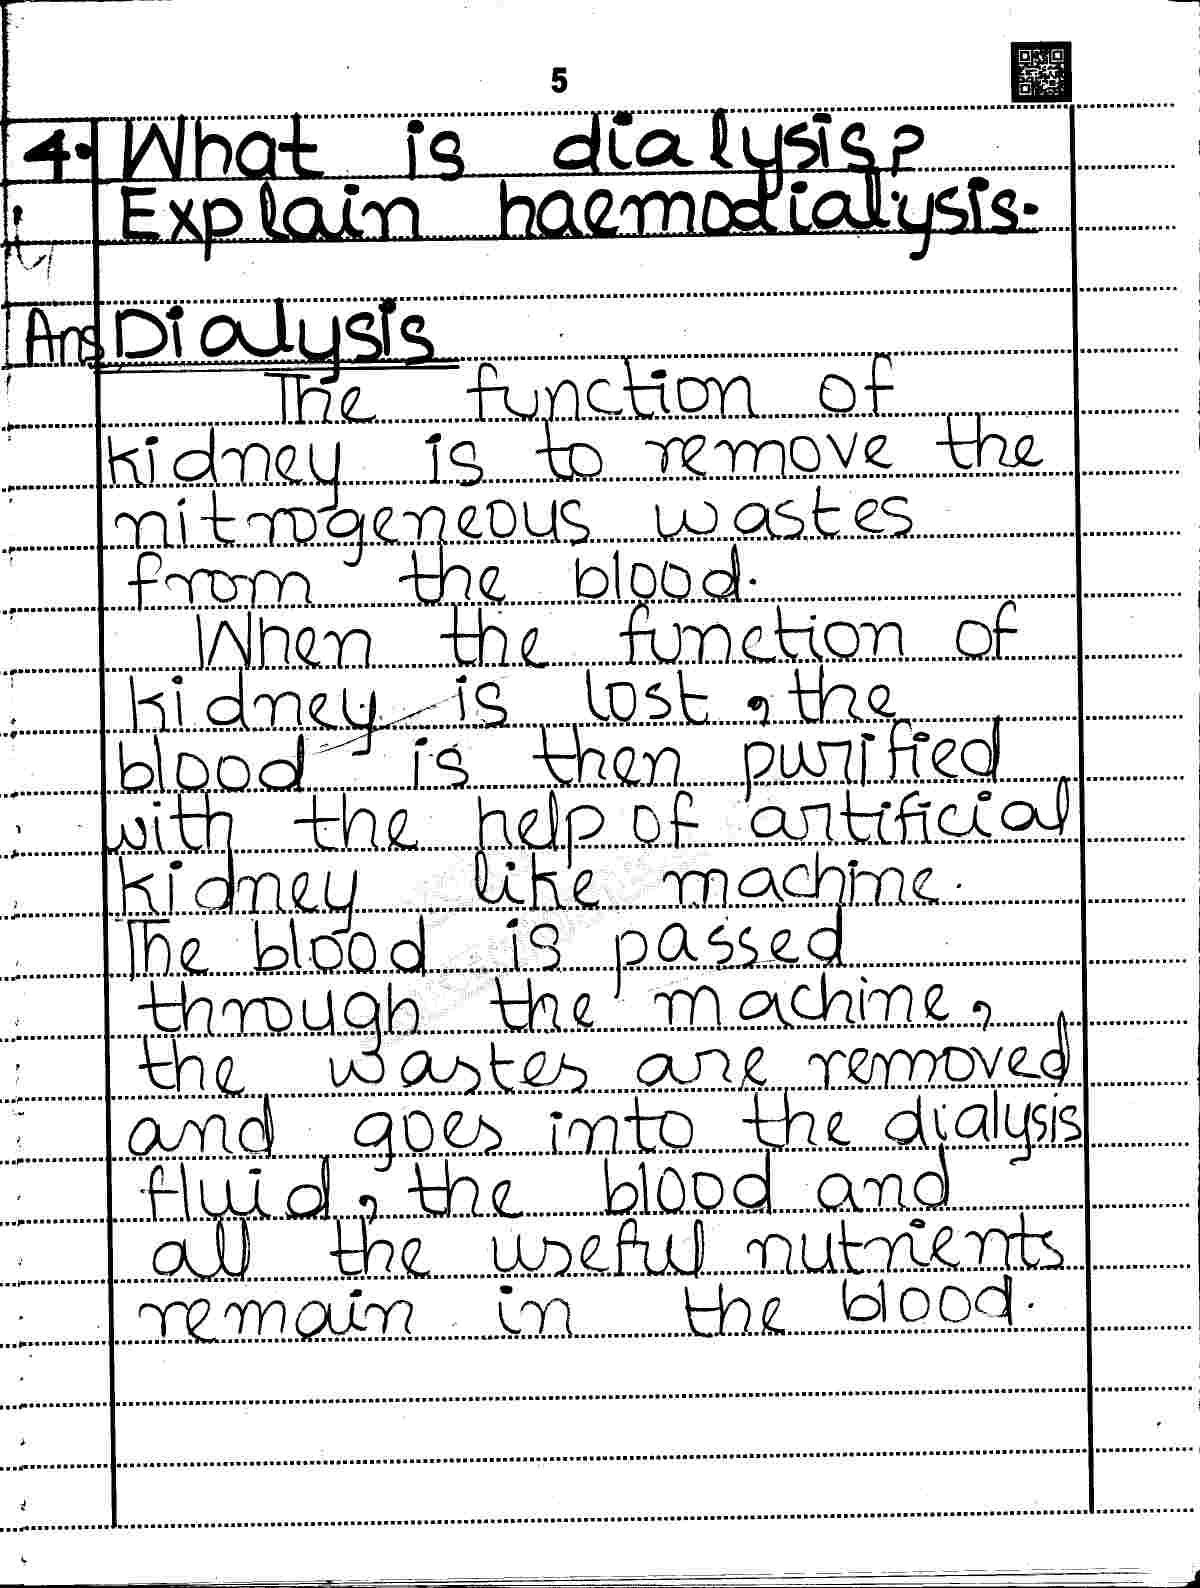 5
4. What is dialysis?
Explain haemodialysis.
Ans Dialysis
The function of
kidney is to remove the
nitrogeneous wastes
from the blood.
When the function of
kidney is lost, the
blood is then purified
with the help of artificial
kidney like machine.
The blood is passed
through the machine,
the wastes are removed
and goes into the dialysis
fluid, the blood and
all the useful nutrients
remain in the blood.